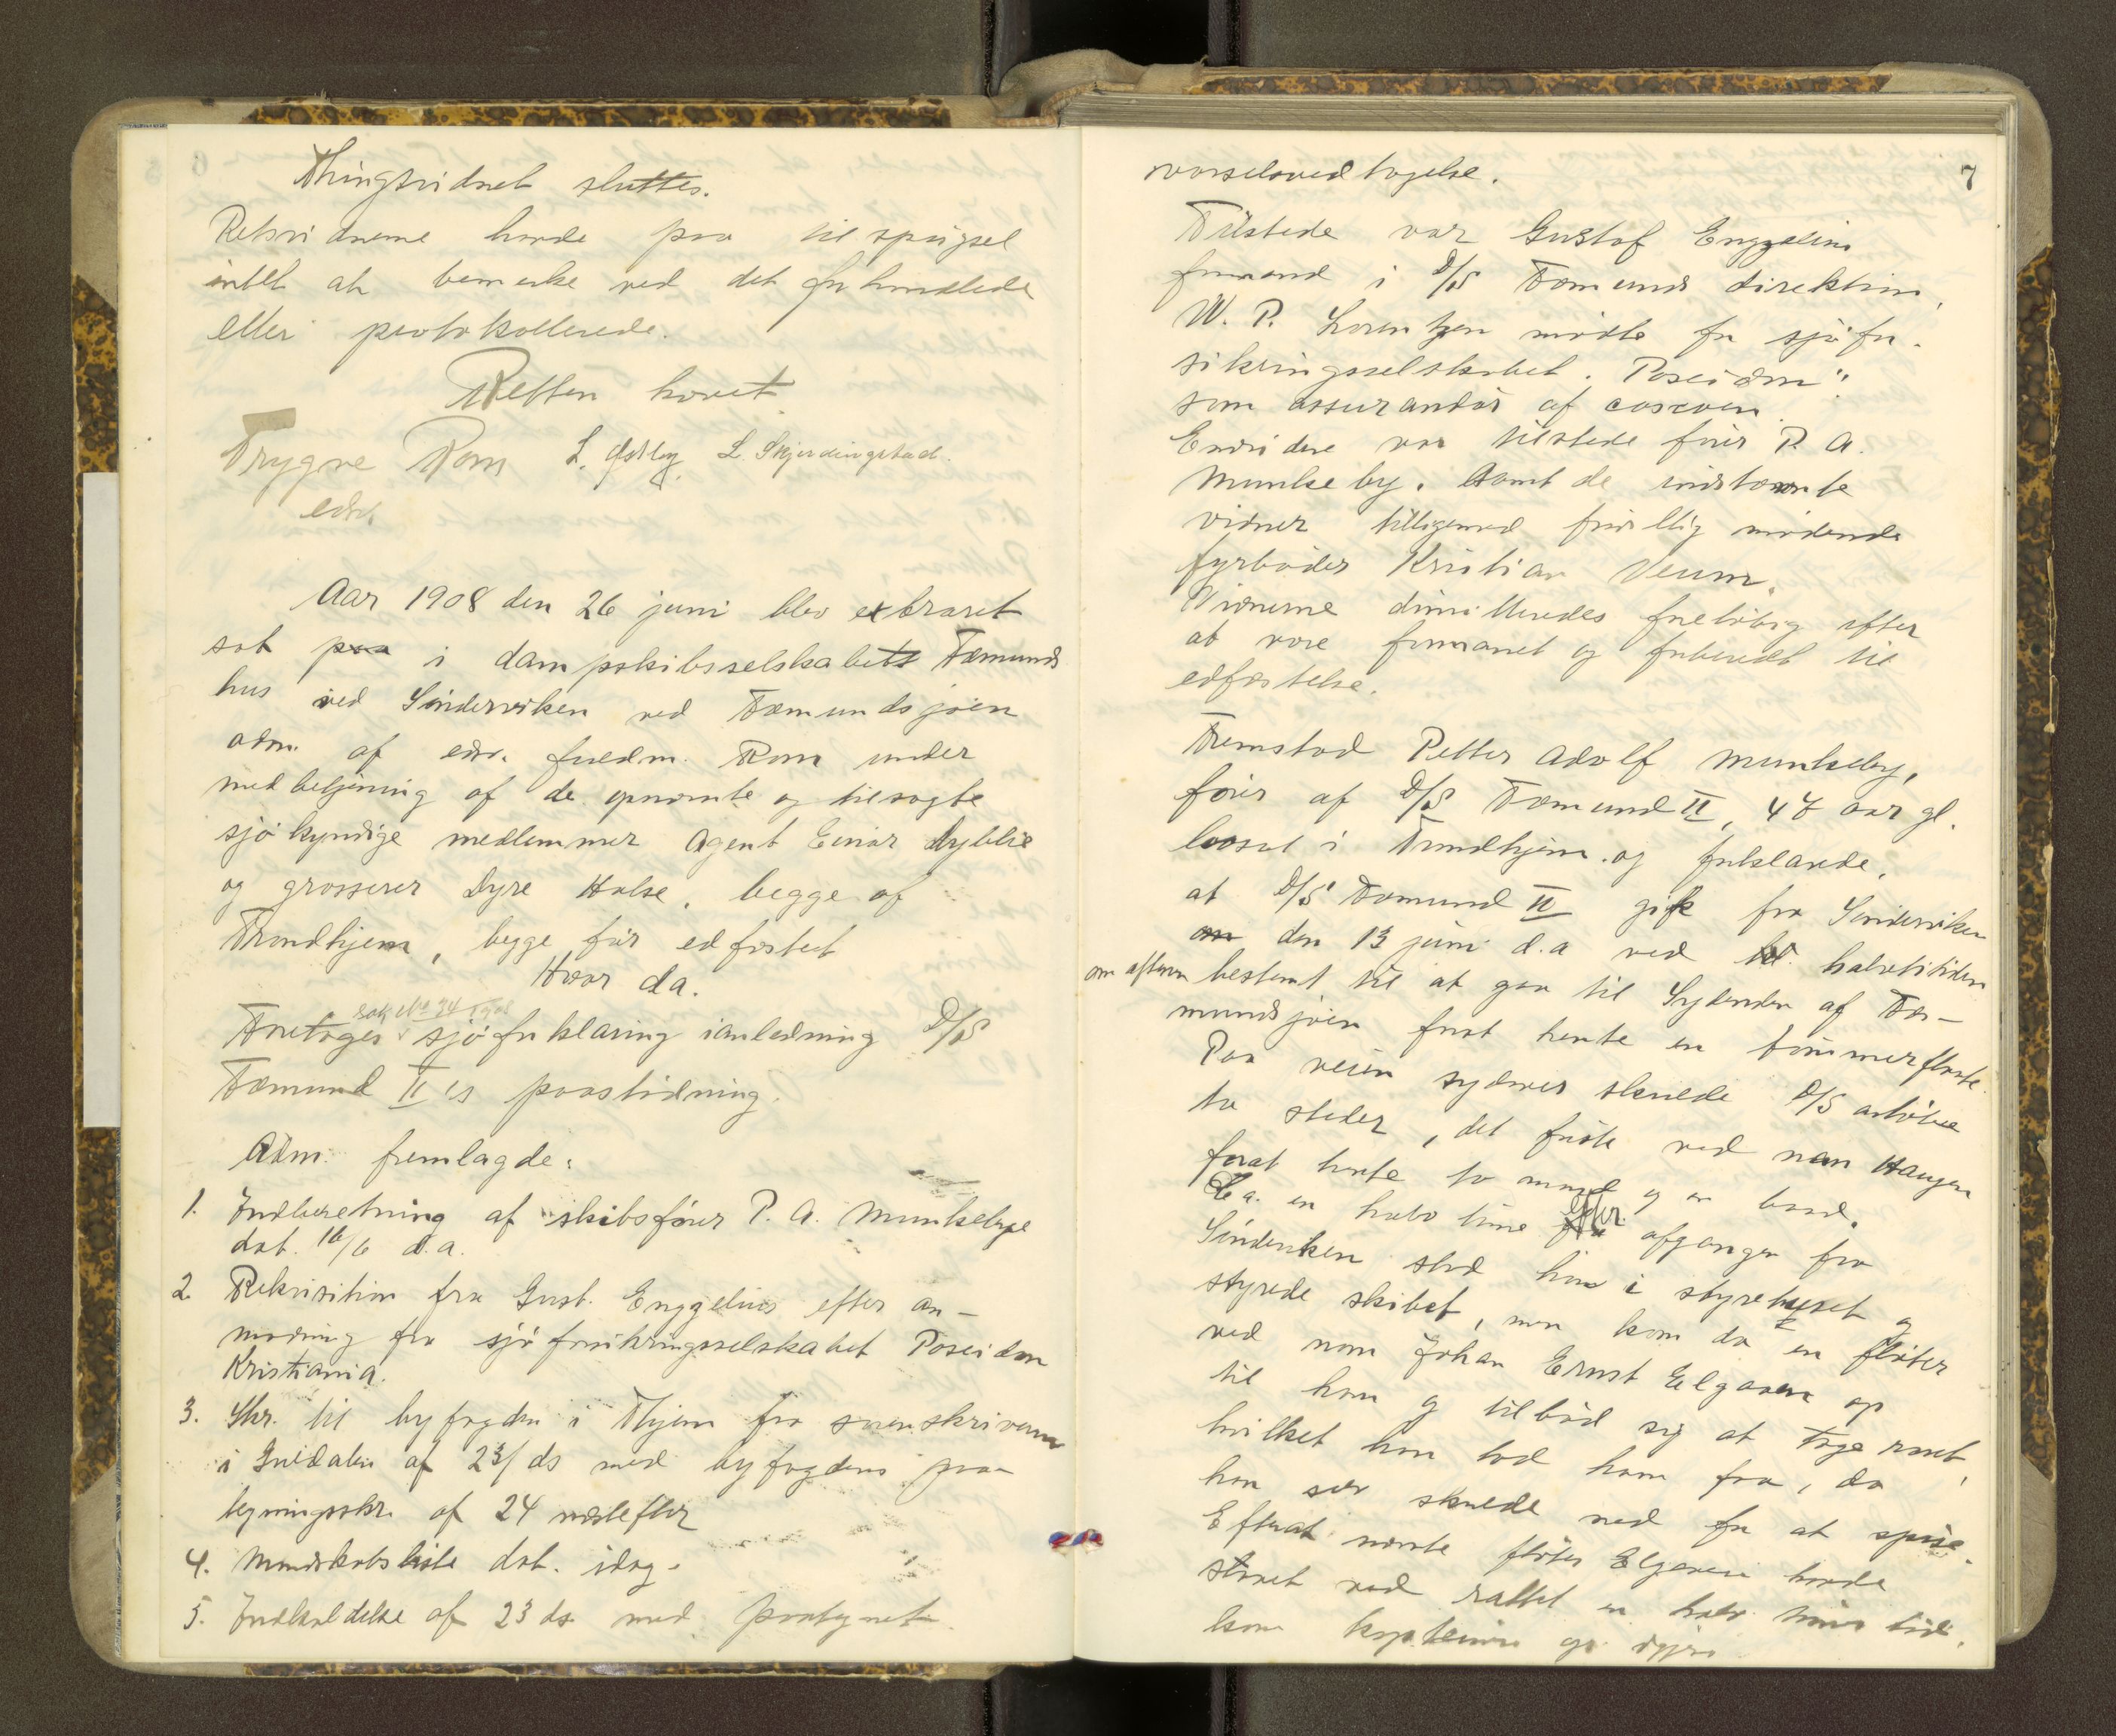 Thingsvidnet sluttes.
Retsvidnerne havde paa tilspørgsel
intet at bemerke ved det forhandlede
eller protokollerede.
Retten hævet
Trygve Rom L. Østby L. Skjerdingstad.
edsv.
Aar 1908 den 26 juni blev extraret
sat paa i dampskibsselskabets Fæmunds
hus ved Sønderviken ved Fæmundsjøen
adm. af edsv. fuldm. Rom under
medbetjening af de opnævnte og tilsagte
sjøkyndige medlemmer agent Einar Dyblie
og grosserer Dyre Halse, begge af
Trondhjem, begge før edfæstet
Hvor da.
Sak No 34 1908
Foretages sjøforklaring i anledning D/S
Fæmund II's paastødning.
Adm. fremlagde:
1. Indberetning af skibsfører P. A. Munkeby
dat. 16/6 d.a.
2. Rekvisition fra Gust. Enggelius efter an-
modning fra sjøforsikringsselskabet Poseidon
Kristiania.
3. Skr. til byfogden i Thjem fra sorenskriveren
i Guldalen af 23/ ds med byfogdens paa-
tegningsskr. af 24 næstefter
4. Mandskabsliste dat. idag.
5. Indkaldelse af 23 ds. med paategnet
7
varselsvedtagelse.
Tilstede var Gustaf Enggelius
formand i D/S Fæmunds direktion,
W. P. Lorentzen mødte for sjøfor-
sikringsselskabet "Poseidon"
som assurandør af cascoen.
Endvidere var tilstede fører P. A.
Munkeby. samt de indstævnte
vidner tilligemed frivillig mødende
fyrbøder Kristian Veum.
Vidnerne dimitteredes foreløbig efter
at være formanet og forberedt til
edfæstelse.
Fremstod Petter Adolf Munkeby,
fører af D/S Fæmund II, 47 aar gl.
bosat i Trondhjem og forklarede,
at D/S Fæmund II gik fra Sønderviken
den 13 juni d.a ved halvtitiden
om aftenen bestemt til at gaa til Sydenden af Fæ-
mundsjøen forat hente en tømmerflaate.
Paa veien sydover skulde D/S anløbe
to steder, det første ved navn Haugen
forat hente to mand og en baad.
Ca. en halv time efter afgangen fra
Sønderviken stod han i styrehuset og
styrede skibet, men kom da en fløter
ved navn Johan Ernst Elgaaen op
til ham og tilbød sig at tage roret,
hvilket han lod ham faa, da
han selv skulde ned for at spise.
Efterat nævnte fløter Elgaaen havde
staaet ved rattet en halv times tid,
kom kapteinen op igjen